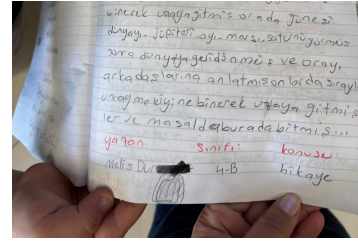 binerek uzaya gitmiş orada güneşi
dünyayı, jüpiteri, ay, marsı, satürnü görmüş
sora dünyaya geri dönmüş ve oray,
arkadaşlarına anlatmış onlarda sırayla
uzay mekiyine binerek uzaya gitmiş
ler ve masalda burada bitmiş...
yazan sınıfı: konusu
Melis 4-B hikaye